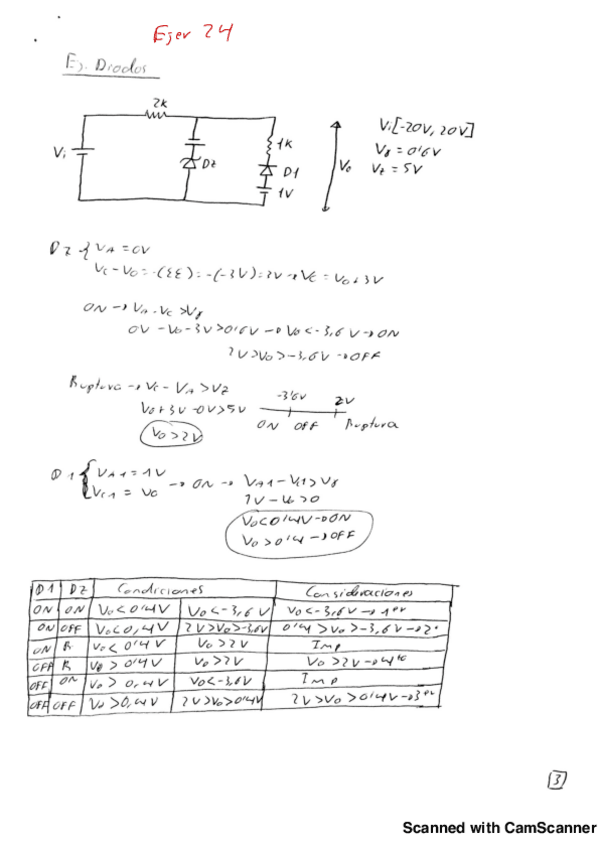 Ejer 24
Ej. Diodos
2k
Vi
Dz
1k
D1
1V
Vo
Vi[-20V, 20V]
Vγ = 0'6V
Vz = 5V
Dz { VA = 0V
Vc - Vo = -(ΣE) = -(-3V) = 3V → Vc = Vo + 3V
ON → VA - Vc > Vγ
0V - Vo - 3V > 0'6V → Vo < -3,6V → ON
2V > Vo > -3,6V → OFF
Ruptura → Vc - VA > Vz
Vo + 3V - 0V > 5V
Vo > 2V
-3'6V 2V
ON OFF Ruptura
D1 { VA1 = 1V
Vc1 = Vo → ON → VA1 - Vc1 > Vγ
1V - Vo > 0
Vo < 0'4V → ON
Vo > 0'4 → OFF
D1 DZ Condiciones Consideraciones
ON ON Vo < 0'4V Vo < -3,6V Vo < -3,6V → 1er
ON OFF Vo < 0,4V 2V > Vo > -3,6V 0'4 > Vo > -3,6V → 2º
ON R Vo < 0'4V Vo > 2V Imp
OFF R Vo > 0'4V Vo > 2V Vo > 2V → 4to
OFF ON Vo > 0,4V Vo < -3,6V Imp
OFF OFF Vo > 0,4V 2V > Vo > 0'4V 2V > Vo > 0'4V → 3er
3
Scanned with CamScanner